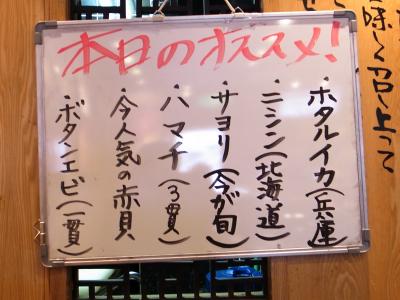 本日のオススメ!
・ホタルイカ(兵庫)
・ニシン(北海道)
・サヨリ(今が旬)
・ハマチ(3貫)
・今人気の赤貝
・ボタンエビ(一貫)
味しく召し上って